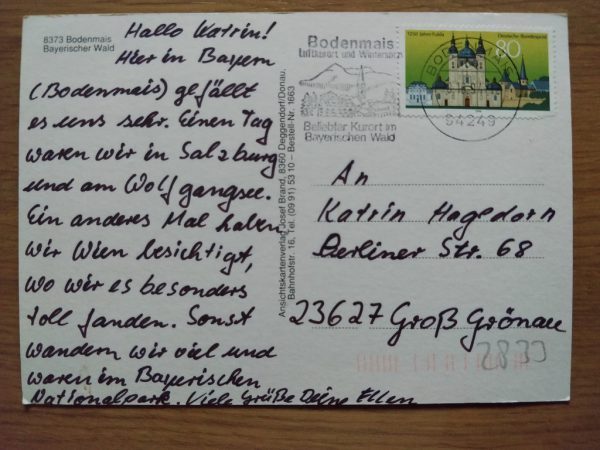 8373 Bodenmais
Bayerischer Wald
Hallo Katrin!
Hier in Bayern
(Bodenmais) gefällt
es uns sehr. Einen Tag
waren wir in Salzburg
und am Wolfgangsee.
Ein anderes Mal haben
wir Wien besichtigt,
wo wir es besonders
toll fanden. Sonst
wandern wir viel und
waren im Bayerischen
Nationalpark. Viele Grüße Deine Ellen
Ansichtskartenverlag Josef Brand, 8360 Deggendorf/Donau,
Bahnhofstr. 16, Tel. (09 91) 53 10 – Bestell-Nr. 1663
Bodenmais
Luftkurort und Wintersport
Beliebter Kurort im
Bayerischen Wald
1250 Jahre Fulda
Deutsche Bundespost
80
94249
An
Katrin Hagedorn
Berliner Str. 68
23627 Groß Grönau
2839